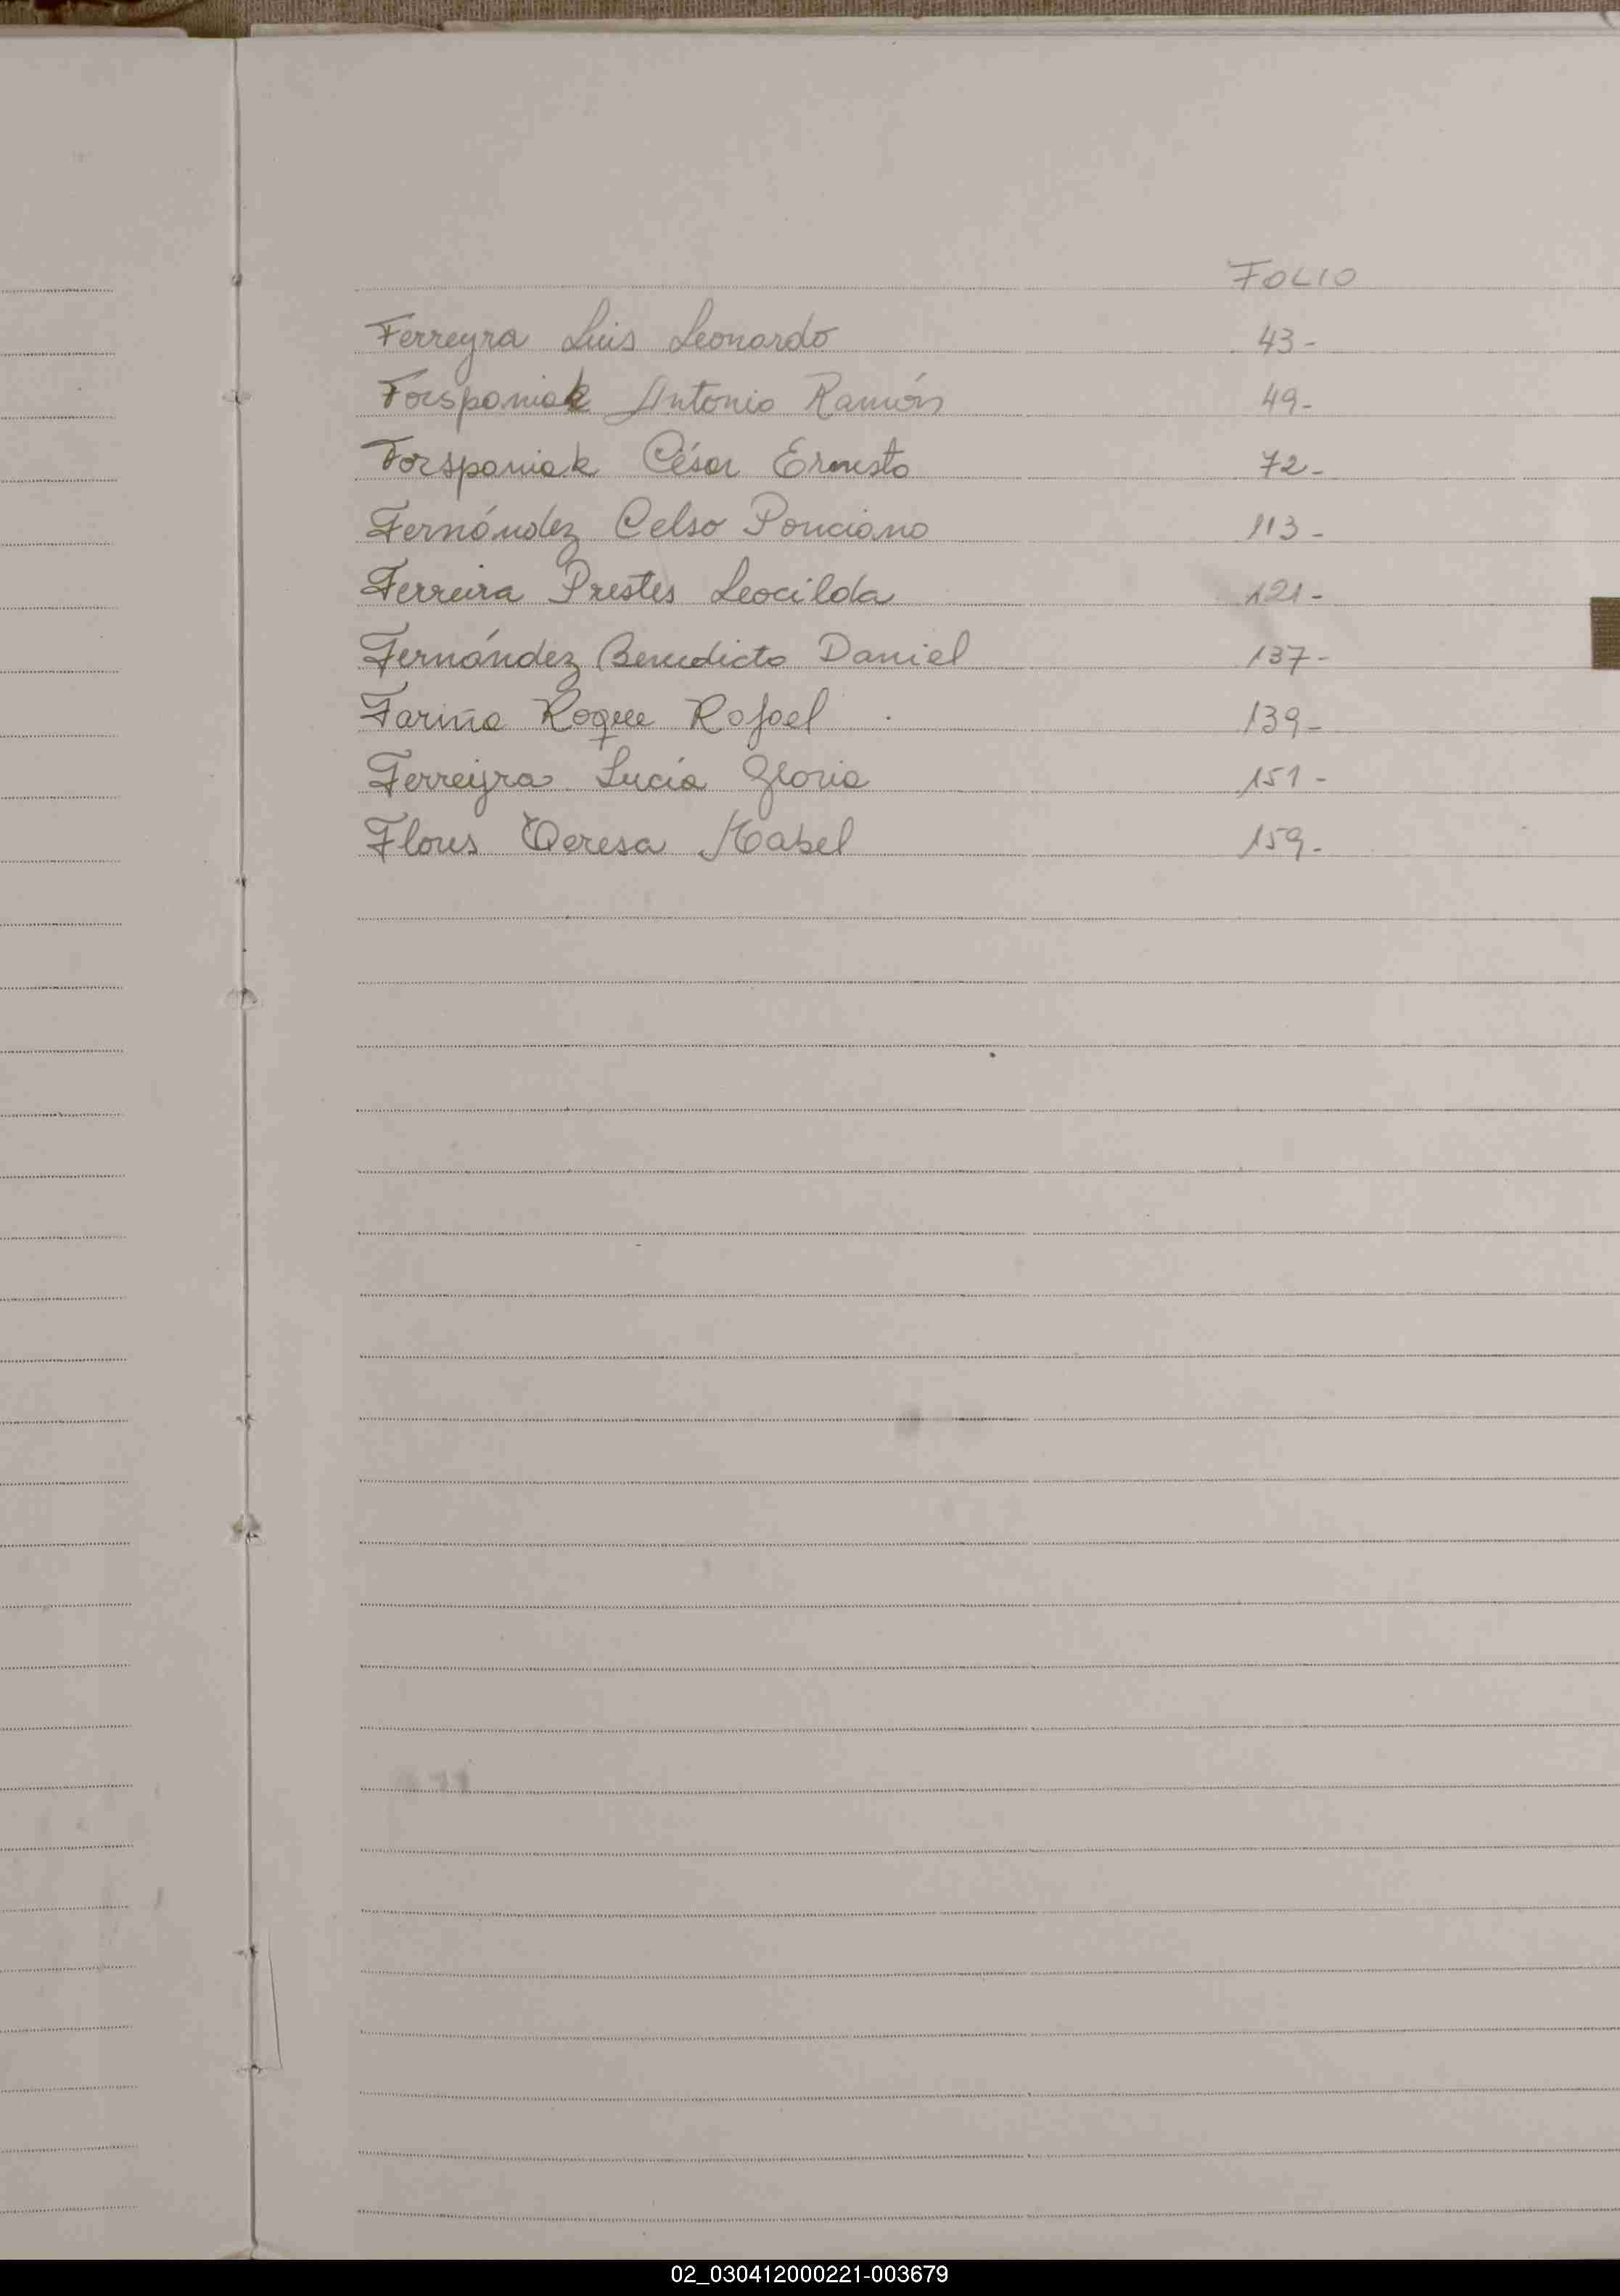 FOLIO
Ferreyra Luis Leonardo 43-
Forsponiak Antonio Ramón 49-
Forsponiak César Ernesto 72-
Fernández Celso Ponciano 113-
Ferreira Prestes Leocilda 121-
Fernández Benedicto Daniel 137-
Fariña Roque Rafael 139-
Ferreyra Lucía Gloria 151-
Flores Teresa Mabel 159-
02_030412000221-003679